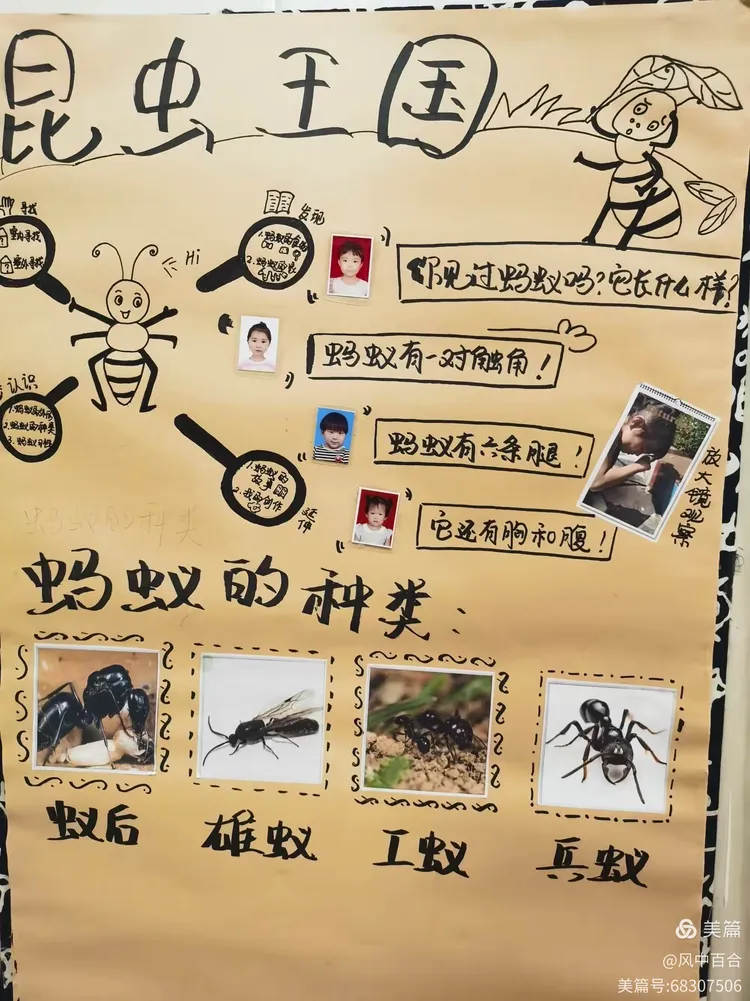 昆虫王国
寻找
室内寻找
室外寻找
Hi
发现
你见过蚂蚁吗？它长什么样？
蚂蚁有一对触角！
认识
2.蚂蚁的种类
3.蚂蚁习性
1.蚂蚁的
故事
2.我的创作
延伸
蚂蚁有六条腿！
它还有胸和腹！
放大镜观察
蚂蚁的种类
蚂蚁的种类：
蚁后
雄蚁
工蚁
兵蚁
美篇
@风中百合
美篇号:68307506